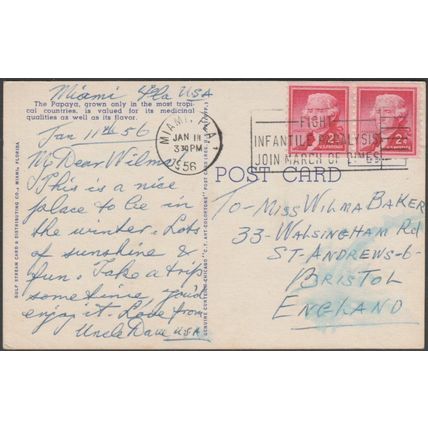 Miami Fla USA
The Papaya, grown only in the most tropi-
cal countries, is valued for its medicinal
qualities as well as its flavor.
Jan 11th 56
My Dear Wilma
This is a nice
palace to be in
the winter. Lots
of sunshine &
fun. Take a trip
some time, you'd
enjoy it. Love from
Uncle Dave USA
GULF STREAM CARD & DISTRIBUTING CO., MIAMI, FLORIDA
GENUINE CURTEICH-CHICAGO "C.T. ART-COLORTONE" POST CARD
MIAMI, FLA.
JAN 11
3 PM
1956
FIGHT
INFANTILE PARALYSIS
JOIN MARCH OF DIMES
2¢
2¢
POST CARD
To- Miss Wilma Baker
33- Walsingham Rd
St- Andrews-6-
Bristol
England